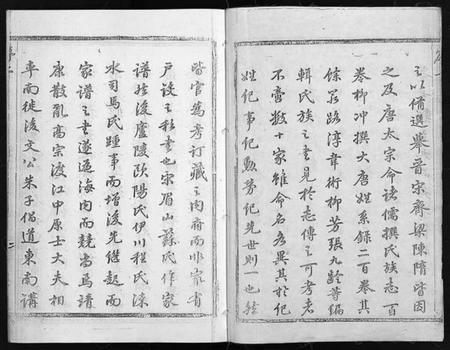 之以備選舉晉宋齊梁陳隋皆因
之及唐太宗命諸儒撰氏族志一百
卷柳冲撰大唐姓系錄二百卷其
餘若路淳韋術柳芳張九齡等編
輯氏族之書見於志傳之可考者
不啻數十家雖命名各異其於紀
姓紀事紀勲勞紀先世則一也然
皆官為考訂藏之内府而非家省
戸談之私書也宋眉山蘇氏作家
譜於後廬陵歐陽氏伊川程氏涑
水司馬氏踵事而增後先繼起而
家譜之書遂遍海内而競尚焉靖
康散亂高宗渡江中原士大夫相
率南徙後文公朱子倡道東南講